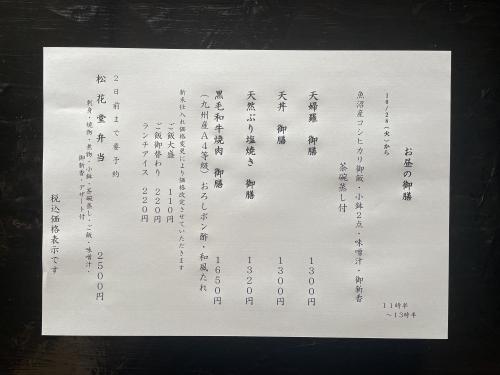 10/28（火）から
お昼の御膳
11時半
～13時半
魚沼産コシヒカリ御飯・小鉢2点・味噌汁・御新香
茶碗蒸し付
天婦羅 御膳 1300円
天丼 御膳 1300円
天然ぶり塩焼き 御膳 1320円
黒毛和牛焼肉 御膳 1650円
（九州産A4等級）おろしポン酢・和風たれ
新米仕入れ価格変更により価格改定させていただきます
ご飯大盛 110円
ご飯御替わり 220円
ランチアイス 220円
2日前まで要予約
松花堂弁当 2500円
刺身・焼物・煮物・小鉢・茶碗蒸し・ご飯・味噌汁・
御新香・デザート付
税込価格表示です